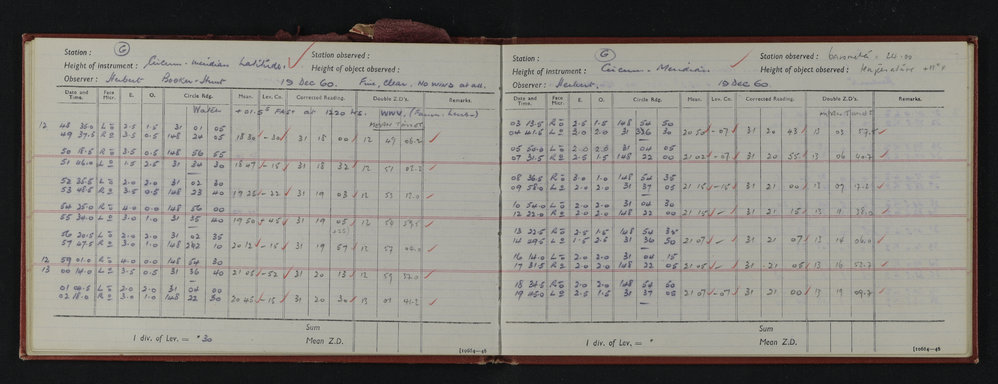 Station : G
Station observed :
Height of instrument : Circum-meridian Latitudes.
Height of object observed :
Observer : Herbert Booker-Hunt 19 Dec 60. Fine, Clear. No wind at all.
Date and Time. Face Micr. E. O. Circle Rdg. Mean. Lev. Co. Corrected Reading. Double Z.D's. Remarks.
Watch + 01.5 s FAST at 1220 hrs. WWV.
MEAN TIME
12 48 35.0 L 2.5 1.5 31 01 05
49 37.5 R 3.5 0.5 148 24 05 18 30 -30 31 18 00 12 49
50 18.5 R 3.5 0.5 148 56 55
51 46.0 L 1.5 2.5 31 34 30 18 47 -15 31 18 32 12 51
52 35.5 L 2.0 2.0 31 02 30
53 48.5 R 3.5 0.5 148 23 40 19 25 -22 31 19 03 12 53
54 25.0 R 4.0 0.0 148 56 00
55 34.0 L 3.0 1.0 31 35 40 19 50 +45 31 19 05 12 54
56 20.5 L 2.0 2.0 31 02 35
57 47.5 R 3.0 1.0 148 10 20 12 -15 31 19 57 12 57
12 59 01.0 R 4.0 0.0 148 54 30
13 00 14.0 L 3.5 0.5 31 36 40 21 05 -52 31 20 13 12 59
01 04.5 L 2.0 2.0 31 04 00
02 18.0 R 3.0 1.0 148 22 30 20 45 -15 31 20 30 13 01 41.2
Sum
1 div. of Lev. = " 30 Mean Z.D.
[10604—46
Station : G
Station observed :
Height of instrument : Circum-Meridian
Height of object observed : temperature
Observer : Herbert. 19 Dec 60.
Date and Time. Face Micr. E. O. Circle Rdg. Mean. Lev. Co. Corrected Reading. Double Z.D's. Remarks.
MEAN TIME
03 13.5 R 2.5 1.5 148 54 50
04 41.5 L 2.0 2.0 31 36 30 20 50 -07 31 20 43 13 03 57.5
05 50.0 L 2.0 2.0 31 04 05
07 31.5 R 2.5 1.5 148 22 00 21 02 -07 31 20 55 13 06 40.7
08 36.5 R 3.0 1.0 148 54 35
09 58.0 L 2.0 2.0 31 37 05 21 15 -15 31 21 00 13 09
10 54.0 L 2.0 2.0 31 04 30
12 22.0 R 2.0 2.0 148 22 00 21 15 - 31 21 15 13 11 38.0
13 22.5 R 2.5 1.5 148 54 35
14 49.5 L 1.5 2.5 31 36 50 21 07 - 31 21 07 13 14 06.0
16 14.0 L 2.0 2.0 31 04 15
17 31.5 R 2.0 2.0 148 22 05 21 05 - 31 21 05 13 16 52.7
18 34.5 R 2.0 2.0 148 54 50
19 45.0 L 2.5 1.5 31 37 05 21 07 -07 31 21 00 13 19 09.7
Sum
1 div. of Lev. = " Mean Z.D.
[10604—46